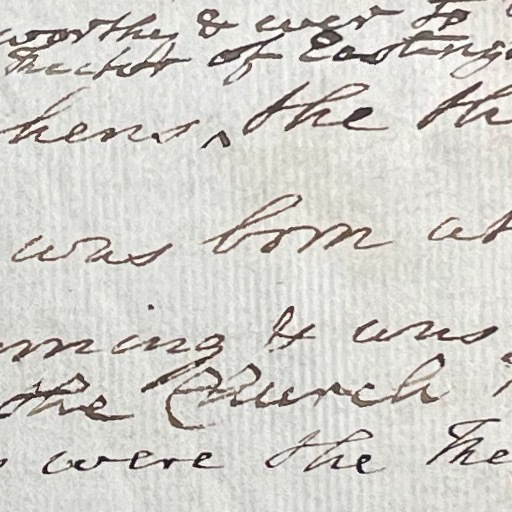 worthy & was to
Rector of Easting
hens, the th
was born at
rning & was
the Church
were the The